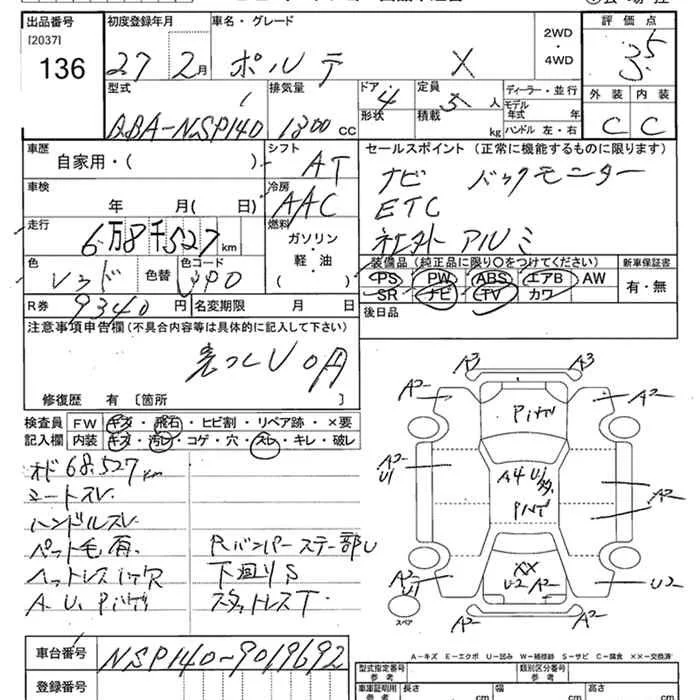 出品番号
[2037]
136
初度登録年月
27 2月
車名・グレード
ポルテ X
2WD
・
4WD
評価点
3.5
型式
DBA-NSP140
排気量
1300 CC
ドア
4
形状
定員
5人
積載
kg
ディーラー・並行
モデル
年式 年
ハンドル 左・右
外装 内装
C C
車歴
自家用・( )
シフト
AT
セールスポイント (正常に機能するものに限ります)
ナビ バックモニター
ETC
社外アルミ
車検
年 月( 日)
冷房
AAC
走行
6万8千527km
燃料
ガソリン
・
軽・油
( )
色
レッド
色替
色コード
装備品(純正品に限り○をつけてください)
PS PW ABS エアB AW
SR ナビ TV カワ
新車保証書
有・無
R券 9340円
名変期限 月 日
後日品
注意事項申告欄(不具合内容等は具体的に記入して下さい)
修復歴 有〔箇所 〕
検査員
記入欄
FW キズ・飛石・ヒビ割・リペア跡・×要
内装 キズ・汚レ・コゲ・穴・スレ・キレ・破レ
オド68.527km
シートスレ
ハンドルスレ
ペット毛有
A.U.Pハゲ
Rバンパーステー部U
下廻りS
スタットレスT
A3 A3
A2 A2
Pハゲ
A2
U1
A4
Pハゲ
A2
A2
U1
XX
U2 A2
U2
A2 A2
スペア
A-キズ E-エクボ U-凹み W-補修跡 S-サビ C-腐食 XX-交換済
車台番号
NSP140-9019692
登録番号
型式指定番号
参考
類別区分番号
参考
車庫証明用
参考
長さ cm
幅 cm
高さ cm